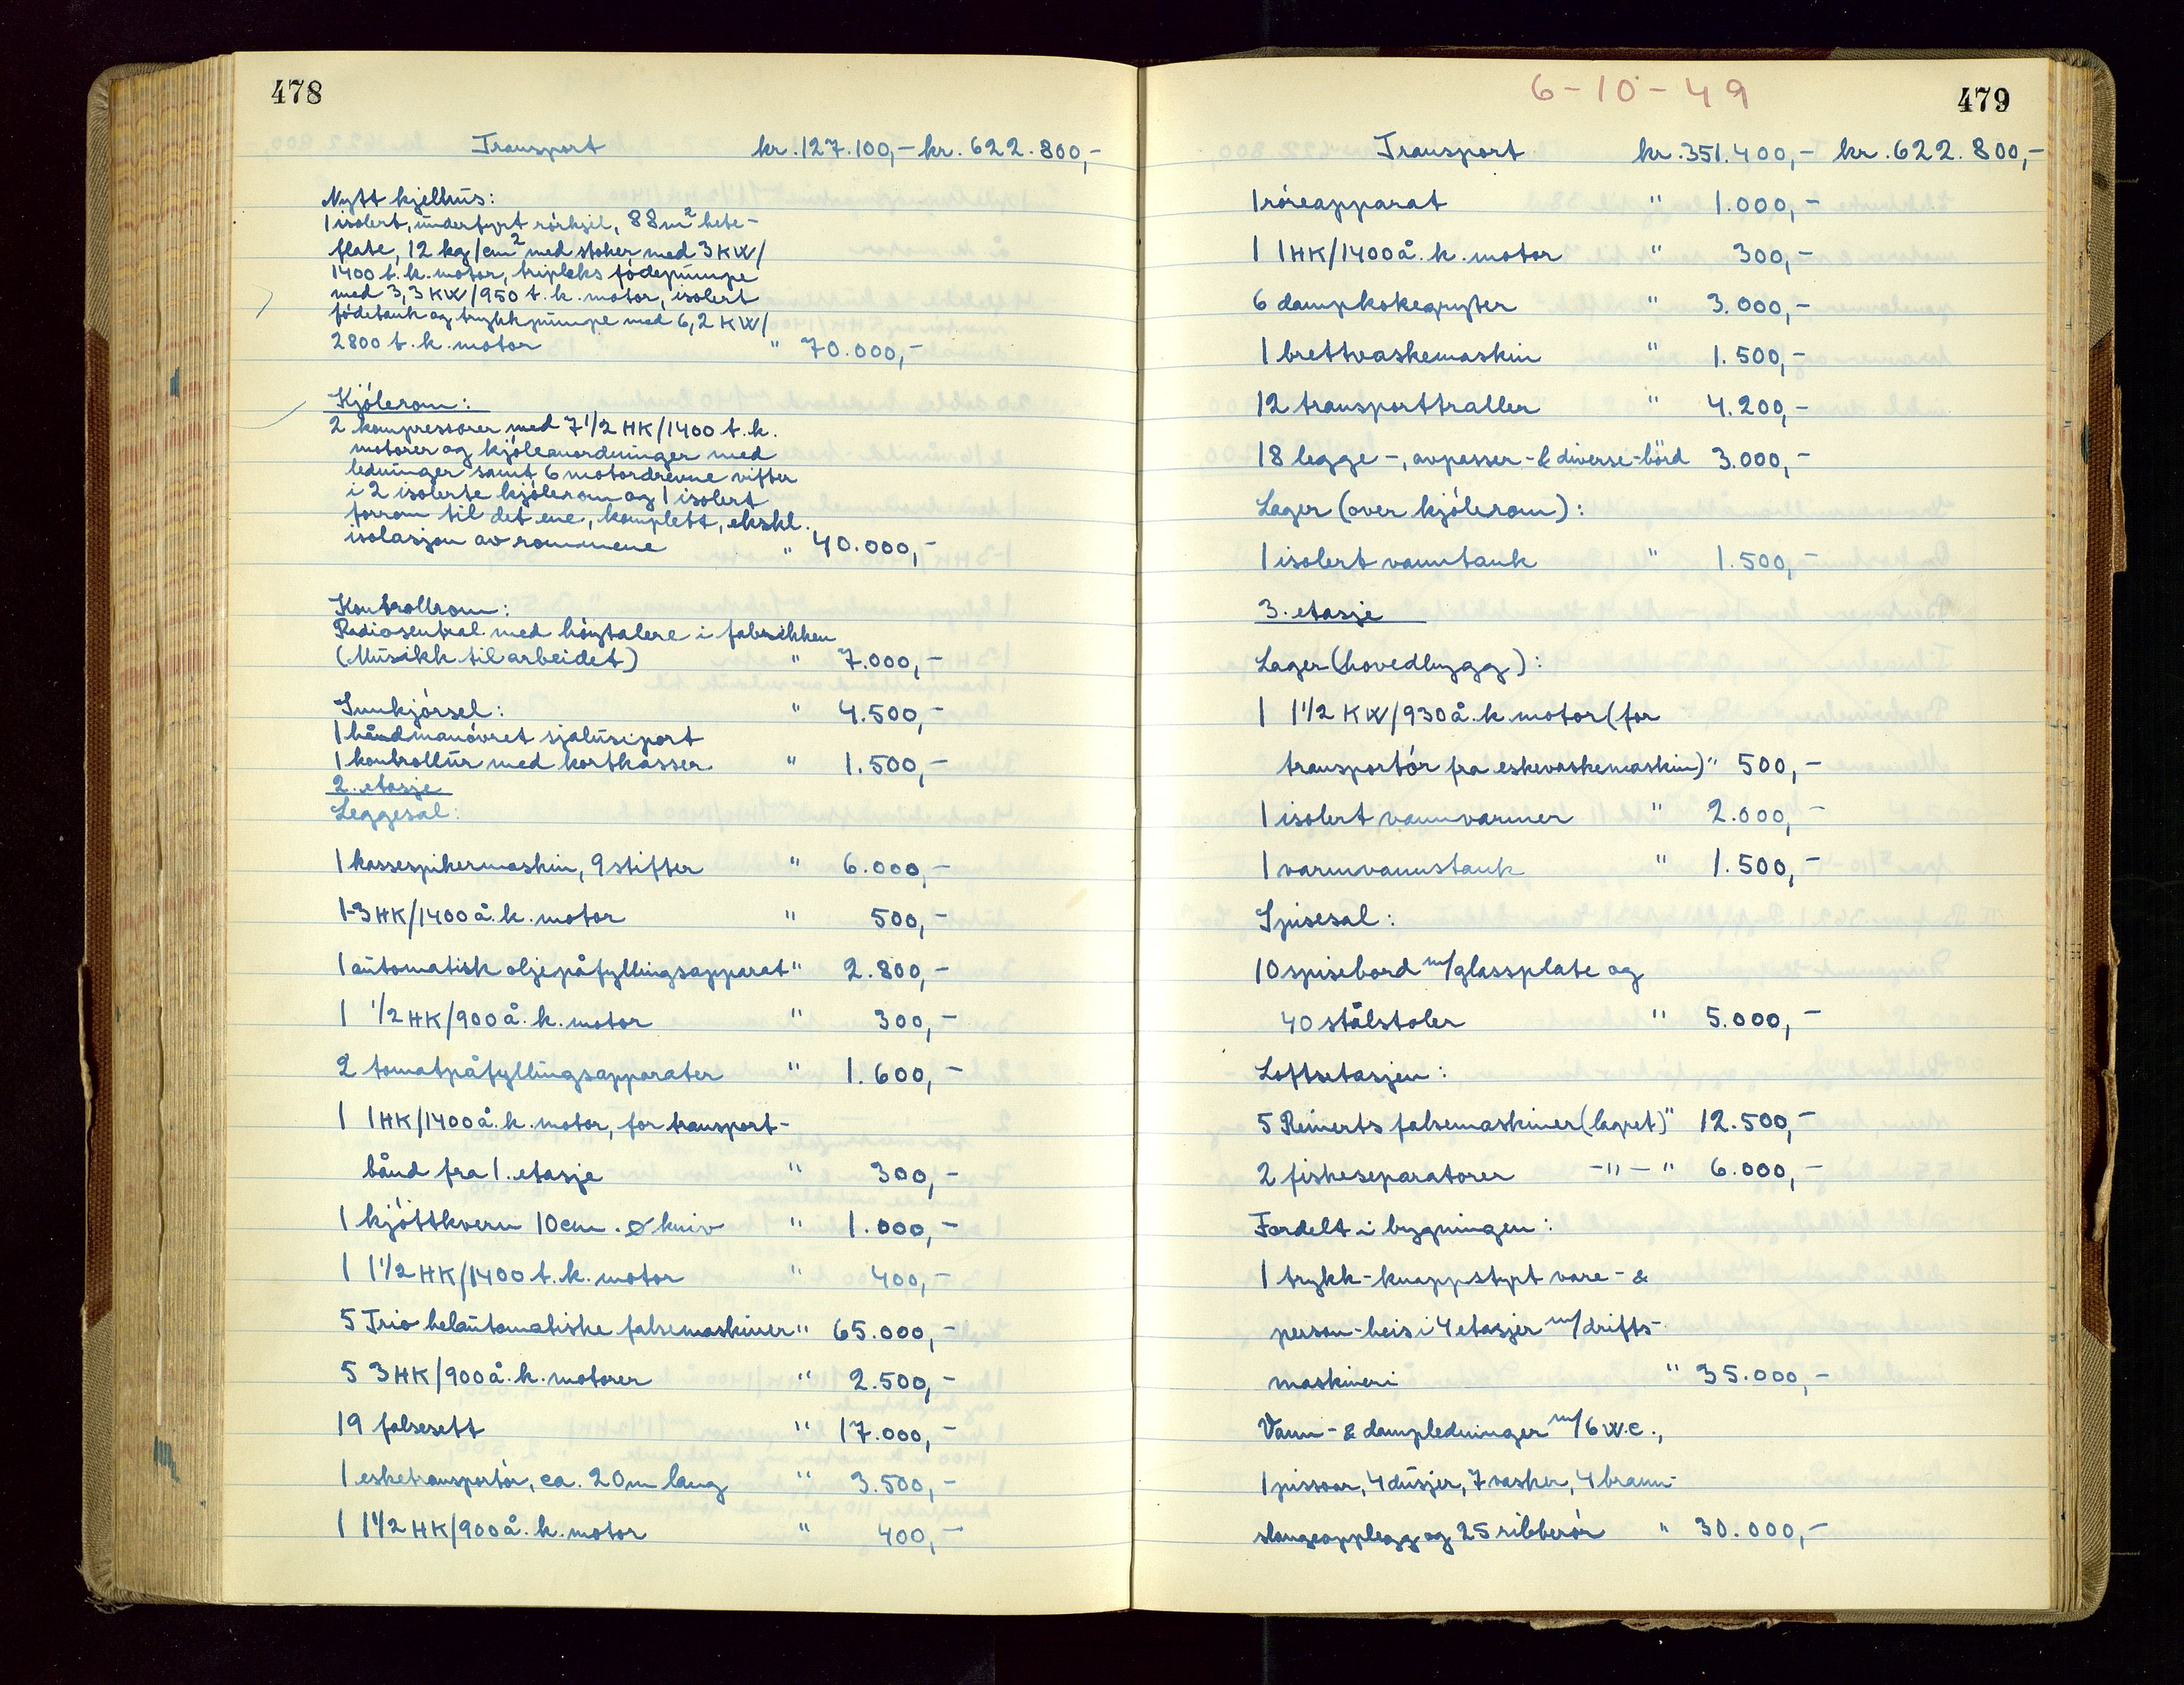 478
Transport kr. 127.100,- kr. 622.800,-
Nytt kjelhus:
1 isolert, underfyrt rörkjel, 88 m² hete-
flate, 12 kg/cm² med stoker med 3 KW/
1400 t.k. motor, tripleks födepumpe
med 3,3 KW/950 t.k. motor, isolert
födetank og trykkpumpe med 6,2 KW/
2800 t.k. motor " 70.000,-
Kjölerom:
2 kompressorer med 7 1/2 HK/1400 t.k.
motorer og kjöleanordninger med
ledninger samt 6 motordrevne vifter
i 2 isolerte kjölerom og 1 isolert
forrom til det ene, komplett, ekskl.
isolasjon av rommene " 40.000,-
Kontrollrom:
Radiosentral med höytalere i fabrikken
(Musikk til arbeidet) " 7.000,-
Innkjörsel: " 4.500,-
1 håndmanövret sjalusiport
1 kontrollur med kortkasser " 1.500,-
2. etasje
Leggesal:
1 kassespikermaskin, 9 stifter " 6.000,-
1-3 HK/1400 å.k. motor " 500,-
1 automatisk oljepåfyllingsapparat " 2.800,-
1 1/2 HK/900 å.k. motor " 300,-
2 tomatpåfyllingsapparater " 1.600,-
1 1 HK/1400 å.k. motor, for transport-
bånd fra 1. etasje " 300,-
1 kjöttkvern 10 cm. ø kniv " 1.000,-
1 1 1/2 HK/1400 t.k. motor " 400,-
5 Trio helautomatiske falsemaskiner " 65.000,-
5 3 HK/900 å.k. motorer " 2.500,-
19 falsesett " 17.000,-
1 esketransportör, ca. 20 m lang " 3.500,-
1 1 1/2 HK/900 å.k. motor " 400,-
6-10-49
479
Transport kr. 351.400,- kr. 622.800,-
1 röreapparat " 1.000,-
1 1 HK/1400 å.k. motor " 300,-
6 dampkokegryter " 3.000,-
1 brettvaskemaskin " 1.500,-
12 transporttraller " 4.200,-
18 legge-, avpasser- & diverse-bord 3.000,-
Lager (over kjölerom):
1 isolert vanntank " 1.500,-
3. etasje
Lager (hovedbygg):
1 1 1/2 KW/930 å.k. motor (for
transportör fra eskevaskemaskin) " 500,-
1 isolert vannvarmer " 2.000,-
1 varmvannstank " 1.500,-
Spisesal:
10 spisebord m/glassplate og
40 stålstoler " 5.000,-
Loftsetasjen:
5 Reinerts falsemaskiner (lagret) " 12.500,-
2 fiskeseparatorer -"- " 6.000,-
Fordelt i bygningen:
1 trykk-knappstyrt vare- &
person-heis i 4 etasjer m/drifts-
maskineri " 35.000,-
Vann- & dampledninger m/6 W.C.,
1 pissoar, 4 dusjer, 7 vasker, 4 brann-
slangeopplegg og 25 ribberör " 30.000,-